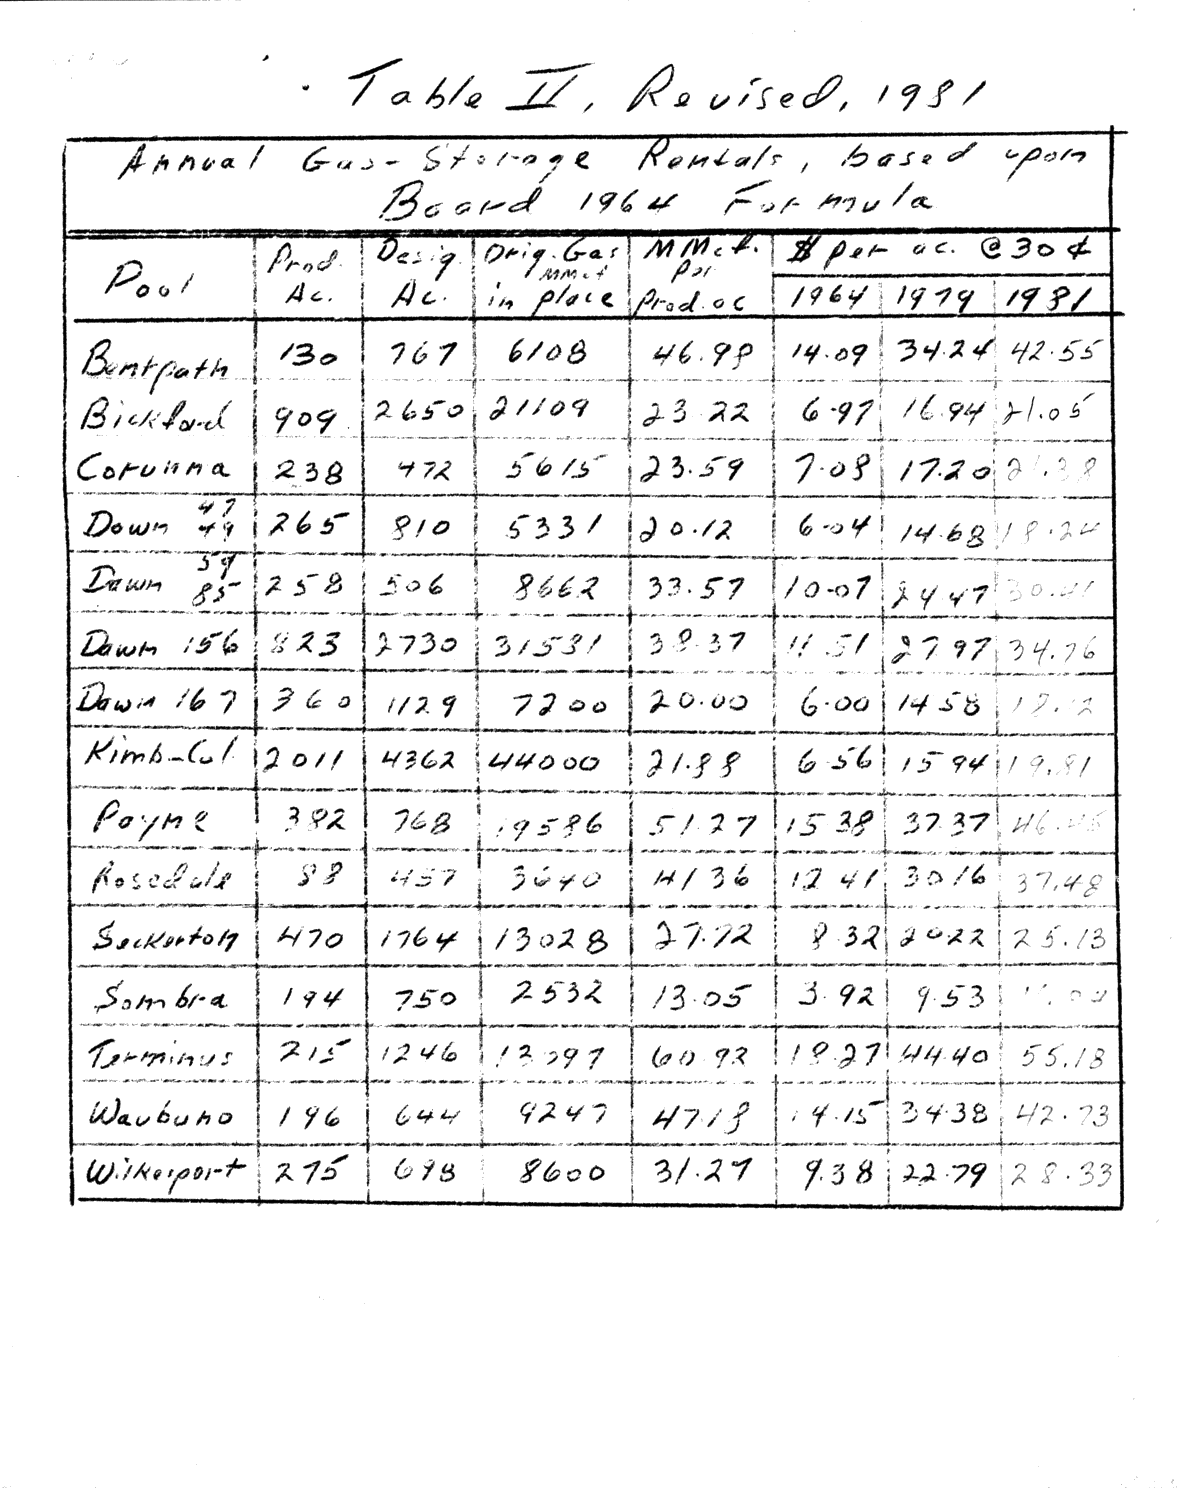 Table II, Revised, 1981
Annual Gas-Storage Rentals, based upon
Board 1964 Formula
Pool Prod. Ac. Desig. Ac. Orig. Gas MMcf in place MMcf. per Prod. ac $ per ac. @ 30 ¢
1964 1979 1981
Bentpath 130 767 6108 46.98 14.09 34.24 42.55
Bickford 909 2650 21109 23.22 6.97 16.94 21.05
Corunna 238 472 5615 23.59 7.08 17.20 21.38
Dawn 47 49 265 810 5331 20.12 6.04 14.68 18.24
Dawn 59 85 258 506 8662 33.57 10.07 24.47 30.41
Dawn 156 823 2730 31581 38.37 11.51 27.97 34.76
Dawn 167 360 1129 7200 20.00 6.00 14.58
Kimb-Col. 2011 4362 44000 21.88 6.56 15.94 19.81
Payne 382 768 19586 51.27 15.38 37.37 46.45
Rosedale 88 457 3640 41.36 12.41 30.16 37.48
Seckerton 470 1764 13028 27.72 8.32 20.22 25.13
Sombra 194 750 2532 13.05 3.92 9.53
Terminus 215 1246 13097 60.92 18.27 44.40 55.18
Waubuno 196 644 9247 47.18 14.15 34.38 42.73
Wilkesport 275 698 8600 31.27 9.38 22.79 28.33